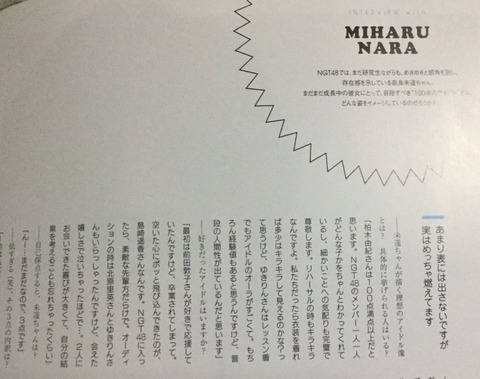 INTERVIEW WITH
MIHARU
NARA
NGT48では、まだ研究生ながらも、めきめきと頭角を現し、
存在感を示している奈良未遥ちゃん。
まだまだ成長中の彼女にとって、目指すべき“100点の
どんな姿をイメージしているのだろうか
あまり表には出さないですが
実はめっちゃ燃えてます
──未遥ちゃんが描く理想のアイドル像
とは?具体的に挙げられる人はいる?
「柏木由紀さんは100点満点以上だと
思います。NGT48のメンバー一人一人
がどんな子かをちゃんとわかってくれて
いるし、細かいことへの気配りも完璧で
尊敬します。リハーサルの時もキラキラ
なんですよ。私たちだったら衣装を着れ
ば多少はキラキラして見えるのかなって
て思うけど、ゆきりんさんはレッスン着
でもアイドルのオーラがすごくて。もち
ろん経験値もあると思うんですけど、普
段の人間性が出ているんだと思います」
──好きだったアイドルはいますか?
「最初は前田敦子さんが好きで応援して
いたんですけど、卒業されてしまって。
空いた心にポッと飛び込んできたのが、
島崎遥香さんなんです。NGT48に入っ
たら、素敵な先輩方だらけで。オーディ
ションの時は北原里英さんとゆきりんさ
んもいらっしゃったんですけど、会えた
嬉しさで泣いちゃったほどで…。2人に
お会いできた喜びが大きくて、自分の結
果を考えることも忘れちゃったくらい」
──自己採点すると、未遥ちゃんは?
「んー!まだまだなので、3点です」
──低すぎる(笑)。その3点の内訳は?